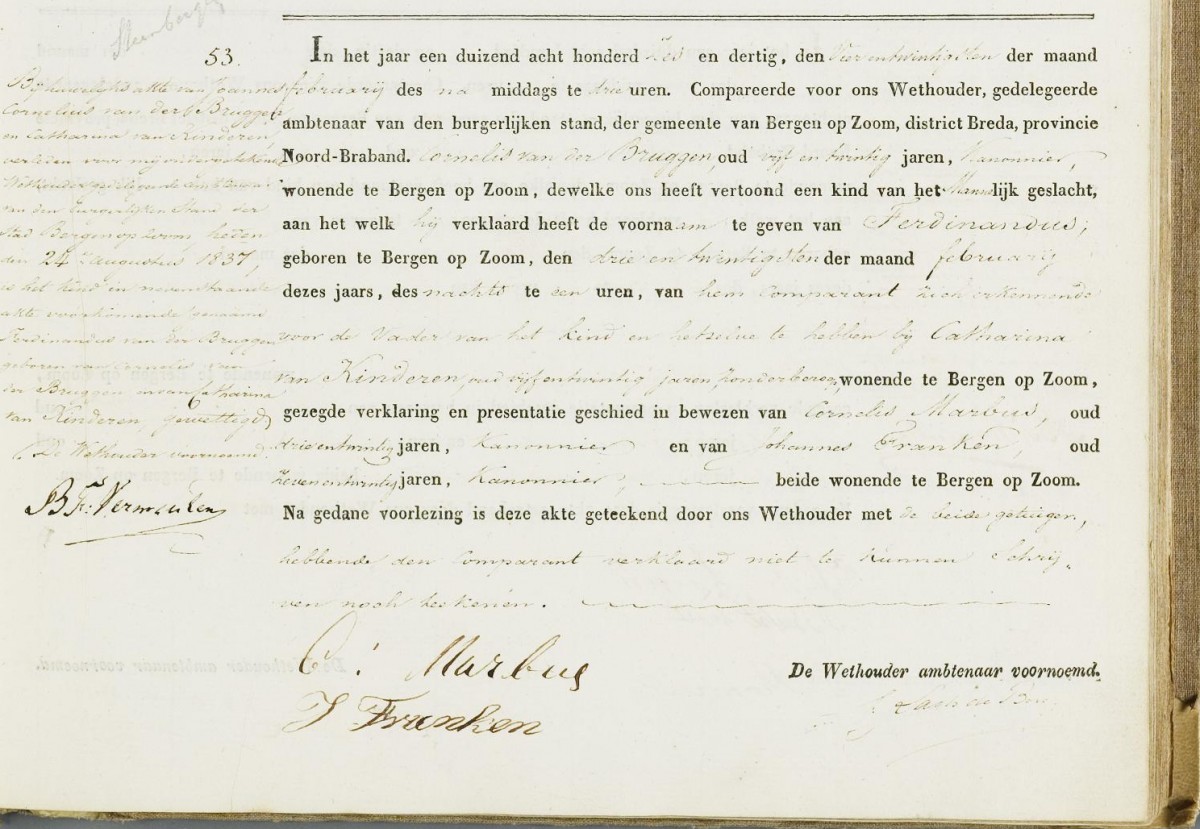 Steenbergen
53.
Bij huwelijks akte van Joannes
Cornelius van der Bruggen
en Catharina van Kinderen,
verleden voor mij ondergeteekende
Wethouder gedelegeerde ambtenaar
van den burgerlijken Stand der
stad Bergen op Zoom, heden
den 24 augustus 1837,
is het kind in nevenstaande
akte voorkomende genaamd
Ferdinandus van der Bruggen
geboren
der Bruggen en van Catharina
van Kinderen, gewettigd
De Wethouder voornoemd
B Fs. Vermeulen
In het jaar een duizend acht honderd zes en dertig, den Vier entwintigsten der maand
februarij des na middags te drie uren. Compareerde voor ons Wethouder, gedelegeerde
ambtenaar van den burgerlijken stand, der gemeente van Bergen op Zoom, district Breda, provincie
Noord-Braband. Cornelis van der Bruggen, oud vijf en twintig jaren, Kanonnier,
wonende te Bergen op Zoom, dewelke ons heeft vertoond een kind van het Mannelijk geslacht,
aan het welk hij verklaard heeft de voornaam te geven van Ferdinandus;
geboren te Bergen op Zoom, den drie en twintigsten der maand februarij
dezes jaars, des nachts te een uren, van hem comparant zich erkennende
voor de Vader van het kind en hetzelve te hebben bij Catharina
van Kinderen, oud vijfentwintig jaren, zonder beroep, wonende te Bergen op Zoom,
gezegde verklaring en presentatie geschied in bewezen van Cornelis Marbus, oud
drieentwintig jaren, Kanonnier en van Johannes Franken, oud
zevenentwintig jaren, Kanonnier, beide wonende te Bergen op Zoom.
Na gedane voorlezing is deze akte geteekend door ons Wethouder met de beide getuigen,
hebbende den Comparant verklaard niet te kunnen Schrij„
ven noch teekenen.
C: Marbus
J Franken
De Wethouder ambtenaar voornoemd.